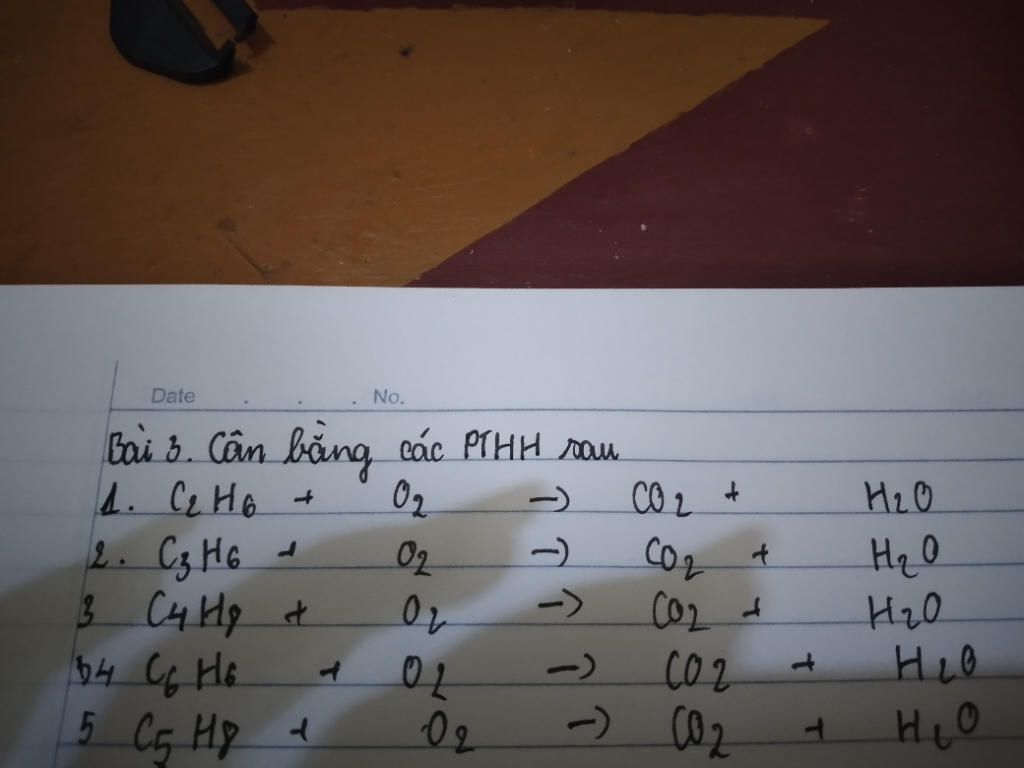 Date . . . No.
Bài 3. Cân bằng các PTHH sau
1. C2H6 + O2 -> CO2 + H2O
2. C3H6 + O2 -> CO2 + H2O
3 C4H8 + O2 -> CO2 + H2O
4 C6H6 + O2 -> CO2 + H2O
5 C5H8 + O2 -> CO2 + H2O